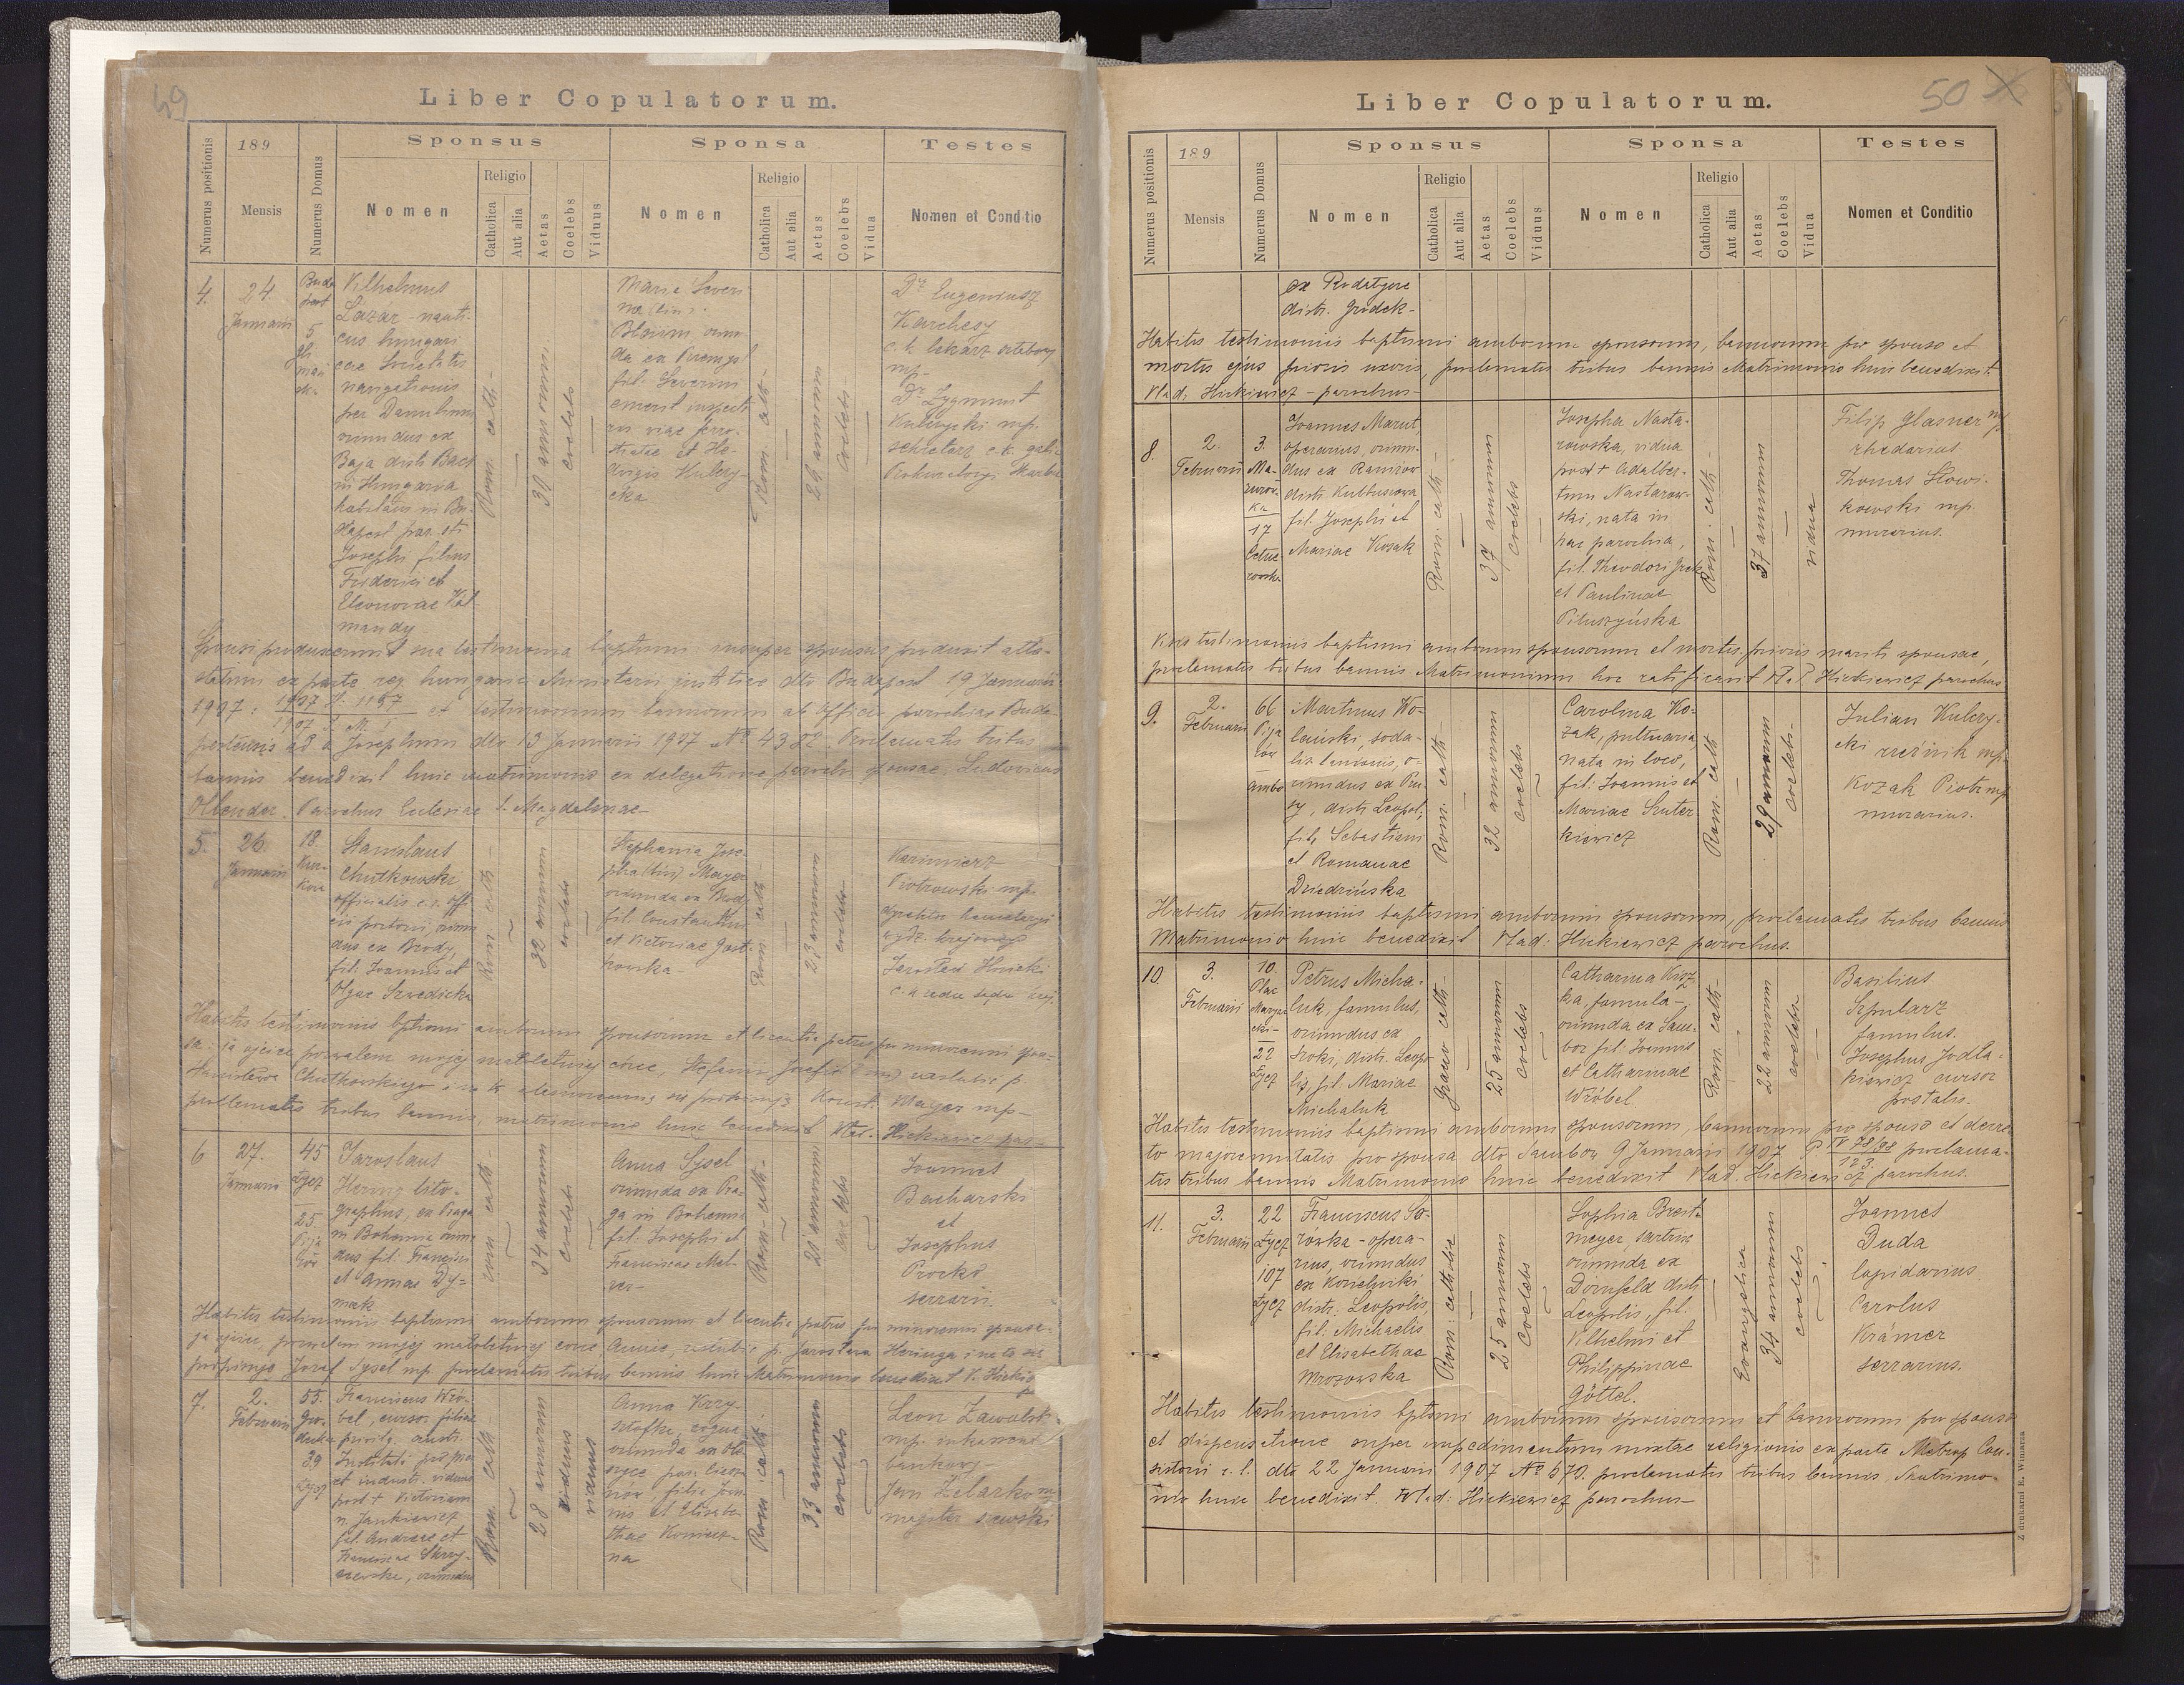 49
Liber Copulatorum.
Numerus positionis
189
Mensis
Numerus Domus
Sponsus
Nomen
Religio
Catholica
Aut alia
Aetas
Coelebs
Viduus
Sponsa
Nomen
Religio
Catholica
Aut alia
Aetas
Coelebs
Vidua
Testes
Nomen et Conditio
4.
24
Januarii
Buda
pest
5
Vilhelmus
Lazar - nauti-
cus hungari
cae Societatis
navigationis
per Danubium,
oriundus ex
Baja distr. Bacs
in Hungaria
habitans in Bu-
dapest par. sti
Josephi filius
Friderici et
Eleonorae Kal-
mandy
Rom. cath -
30 annorum
coelebs
Maria Severi
na (bin).
oriun-
da ex Przemyśl
fil. Severini
emerit inspecto
ris viae ferre-
tratae et He-
dvigis Kulczy-
cka
Rom. cath -
24 annorum
coelebs
Dr Eugeniusz
Karchesy
c. k. lekarz sztabowy
mp.
Dr Zygmunt
Kulczycki mp.
sekretarz c. k. galic
Prokuratoryi Skarbu
Sponsi produxerunt sua testimonia baptismi insuper sponsus produxit atte-
statum ex parte reg hungarici Ministerii justitiae dto Budapest 19 Januarii
1907: et testimonium bannorum ab Officio parochiae Buda-
pestensis ad S. Josephum dto 13 Januarii 1907 No 4382 Proclamatis tribus
bannis benedixit huic matrimonio ex delegatione parochi sponsae. Ludovicus
Ollender. Parochus Ecclesiae S. Magdalenae
5.
26
Januarii
18.
Kur-
kowa
Stanislaus
Chutkowski
officialis c. r. off
icii portorii, oriun
dus ex Brody,
fil. Joannis et
Olgae Szwedicka
Rom cath -
32 annorum
coelebs
Stephania Jose-
pha (bin) Mayer
oriunda ex Brody
fil. Constantini
et Victoriae Gost-
kowska -
Rom. cath -
23 annorum
coelebs
Kazimierz
Piotrowski mp.
dyrektor kancelaryi
wydz. krajowego
Jarosław
c. k. radca sądu kraj.
Habitis testimoniis bptismi amborum sponsorum et licentia patris pro minorenni spon-
sa: ja ojciec pozwalam mojej małoletniej córce, Stefanii Józefie (2 im.) zaślubić p
Stanisława Chutkowskiego i na to własnoręcznie się podpisuję Konst. Mayer mp-
proclamatis tribus bannis, matrimonio huic benedixit Vlad. Hickiewicz par-
6
27.
Januarii
45
Łycz
25.
Pija
rów
Jaroslaus
Hering lito-
graphus, ex Praga
in Bohemia oriun
dus fil. Francisci
et Annae Dy-
mek
rom cath -
34 annorum
coelebs
Anna Sysel
oriunda ex Pra-
ga in Bohemia
fil. Josephi et
Franciscae Mel-
zer-
Rom- cath -
20 annorum
coelebs
Joannes
Bacharski
et
Josephus
Procko
serrarii.
Habitis testimoniis baptismi amborum sponsorum et licentia patris pro minorenni sponsa:
ja ojciec, pozwalam mojej małoletniej córce Annie, zaślubić p. Jarosława Heringa i na to się
podpisuję Józef Sysel mp. proclamatis tribus bannis huic Matrimonio benedixit V. Hickie
7.
2.
Februarii
55.
Gro-
decka
39
Łycz
Franciscus Wró-
bel, cursor filiae
privileg. austr.
Instituti pro
et industr. viduus
post + Victoriam
n. Jankiewicz
fil. Andreae et
Franciscae Skrzy-
szewska, oriundus
Rom. cath
28 annorum
viduus
viduus
Anna Krzy-
sztofka, coqua
oriunda ex
filia Joan
nis et Elisabe-
thae Koniecz-
na
Rom: cath -
33 annorum
coelebs
Leon Zawalski
mp. inkasent
bankowy -
Jan Zelasko mp
majster szewski
50
Liber Copulatorum.
Numerus positionis
189
Mensis
Numerus Domus
Sponsus
Nomen
Religio
Catholica
Aut alia
Aetas
Coelebs
Viduus
Sponsa
Nomen
Religio
Catholica
Aut alia
Aetas
Coelebs
Vidua
Testes
Nomen et Conditio
ex Rodatycze
distr. Gródek -
Habitis testimoniis baptismi amborum sponsorum, bannorum pro sponso et
mortis ejus prioris uxoris, proclamatis tribus bannis Matrimonio huic benedixit.
Vlad. Hickiewicz - parochus -
8.
2.
Februarii
3.
Ma-
zurów-
ka
17
Joannes Marut,
operarius, oriun-
dus ex Ranizow
distr. Kolbuszowa
fil. Josephi et
Mariae Kosak
Rom: cath -
37 annorum
coelebs
Josepha Nasta-
rowska, vidua
post + Adalber-
tum Nastarow-
ski, nata in
hac parochia,
fil. Theodori Grek
et Paulinae
Pituszyńska
Rom: cath -
37 annorum
vidua
Filip Glasner mp
rhedarius
Thomas Słowi-
kowski mp.
murarius.
Visis testimoniis baptismi amborum sponsorum et mortis prioris mariti sponsae,
proclamatis tribus bannis Matrimonium hoc ratificavit Vlad Hickiewicz parochus
9.
2.
Februarii
66
Pija
rów
ambo
Martinus Wo-
lański, soda-
lis lanionis, o-
riundus ex Pru-
sy, distr. Leopol.,
fil. Sebastiani
et Romanae
Dziedzińska
Rom. cath -
32 annorum
coelebs
Carolina Ko-
zak, pultuaria,
nata in loco,
fil. Joannis et
Mariae Szuter-
kiewicz
Rom. cath
29 annorum
coelebs -
Julian Kulczy-
cki rzeźnik mp.
Kozak Piotr mp
murarius.
Habitis testimoniis baptismi amborum sponsorum, proclamatis tribus bannis
Matrimonio huic benedixit Vlad: Hickiewicz parochus.
10.
3.
Februarii
10.
Plac
22
Łycz
Petrus Micha-
luk, famulus,
oriundus ex
Sroki, distr. Leopo-
lis, fil. Mariae
Michaluk
Graeco cath -
25 annorum
coelebs
Catharina Kisz
ka, famula -
oriunda ex Sam-
bor fil. Joannis
et Catharinae
Wróbel
Rom. cath -
22 annorum
coelebs
Basilius
Szpularz
famulus.
Josephus Jodła-
kiewicz cursor
postalis.
Habitis testimoniis baptismi amborum sponsorum, bannorum pro sponso et decre-
to majorennitatis pro sponsa dto Sambor 9 Januarii 1907 P. IV 78/98 proclama-
123
tis tribus bannis Matrimonio huic benedixit Vlad. Hickiewicz parochus.
11.
3.
Februarii
22
Łycz
107
Łycz
Franciscus So-
rowka - opera-
rius, oriundus
ex Kozielniki
distr. Leopolis,
fil: Michaelis
et Elisabethae
Mrozowska
Rom: catholic
25 annorum
coelebs
Sophia Breit-
meyer, sartrix
oriunda ex
Dornfeld distr
Leopolis, fil.
Vilhelmi et
Philippinae
Göttel.
Evangelica
34 annorum
coelebs
Joannes
Duda
lapidarius.
Carolus
Krämer
serrarius.
Habitis testimoniis bptismi amborum sponsorum et bannorum pro sponso
et dispensatione super impedimentum mixtae religionis ex parte Metrop Con-
sistorii r. l. dto 22 Januarii 1907 No 570. proclamatis tribus bannis. Matrimo-
nio huic benedixit. Wlad: Hickiewicz parochus -
Z drukarni E. Winiarza